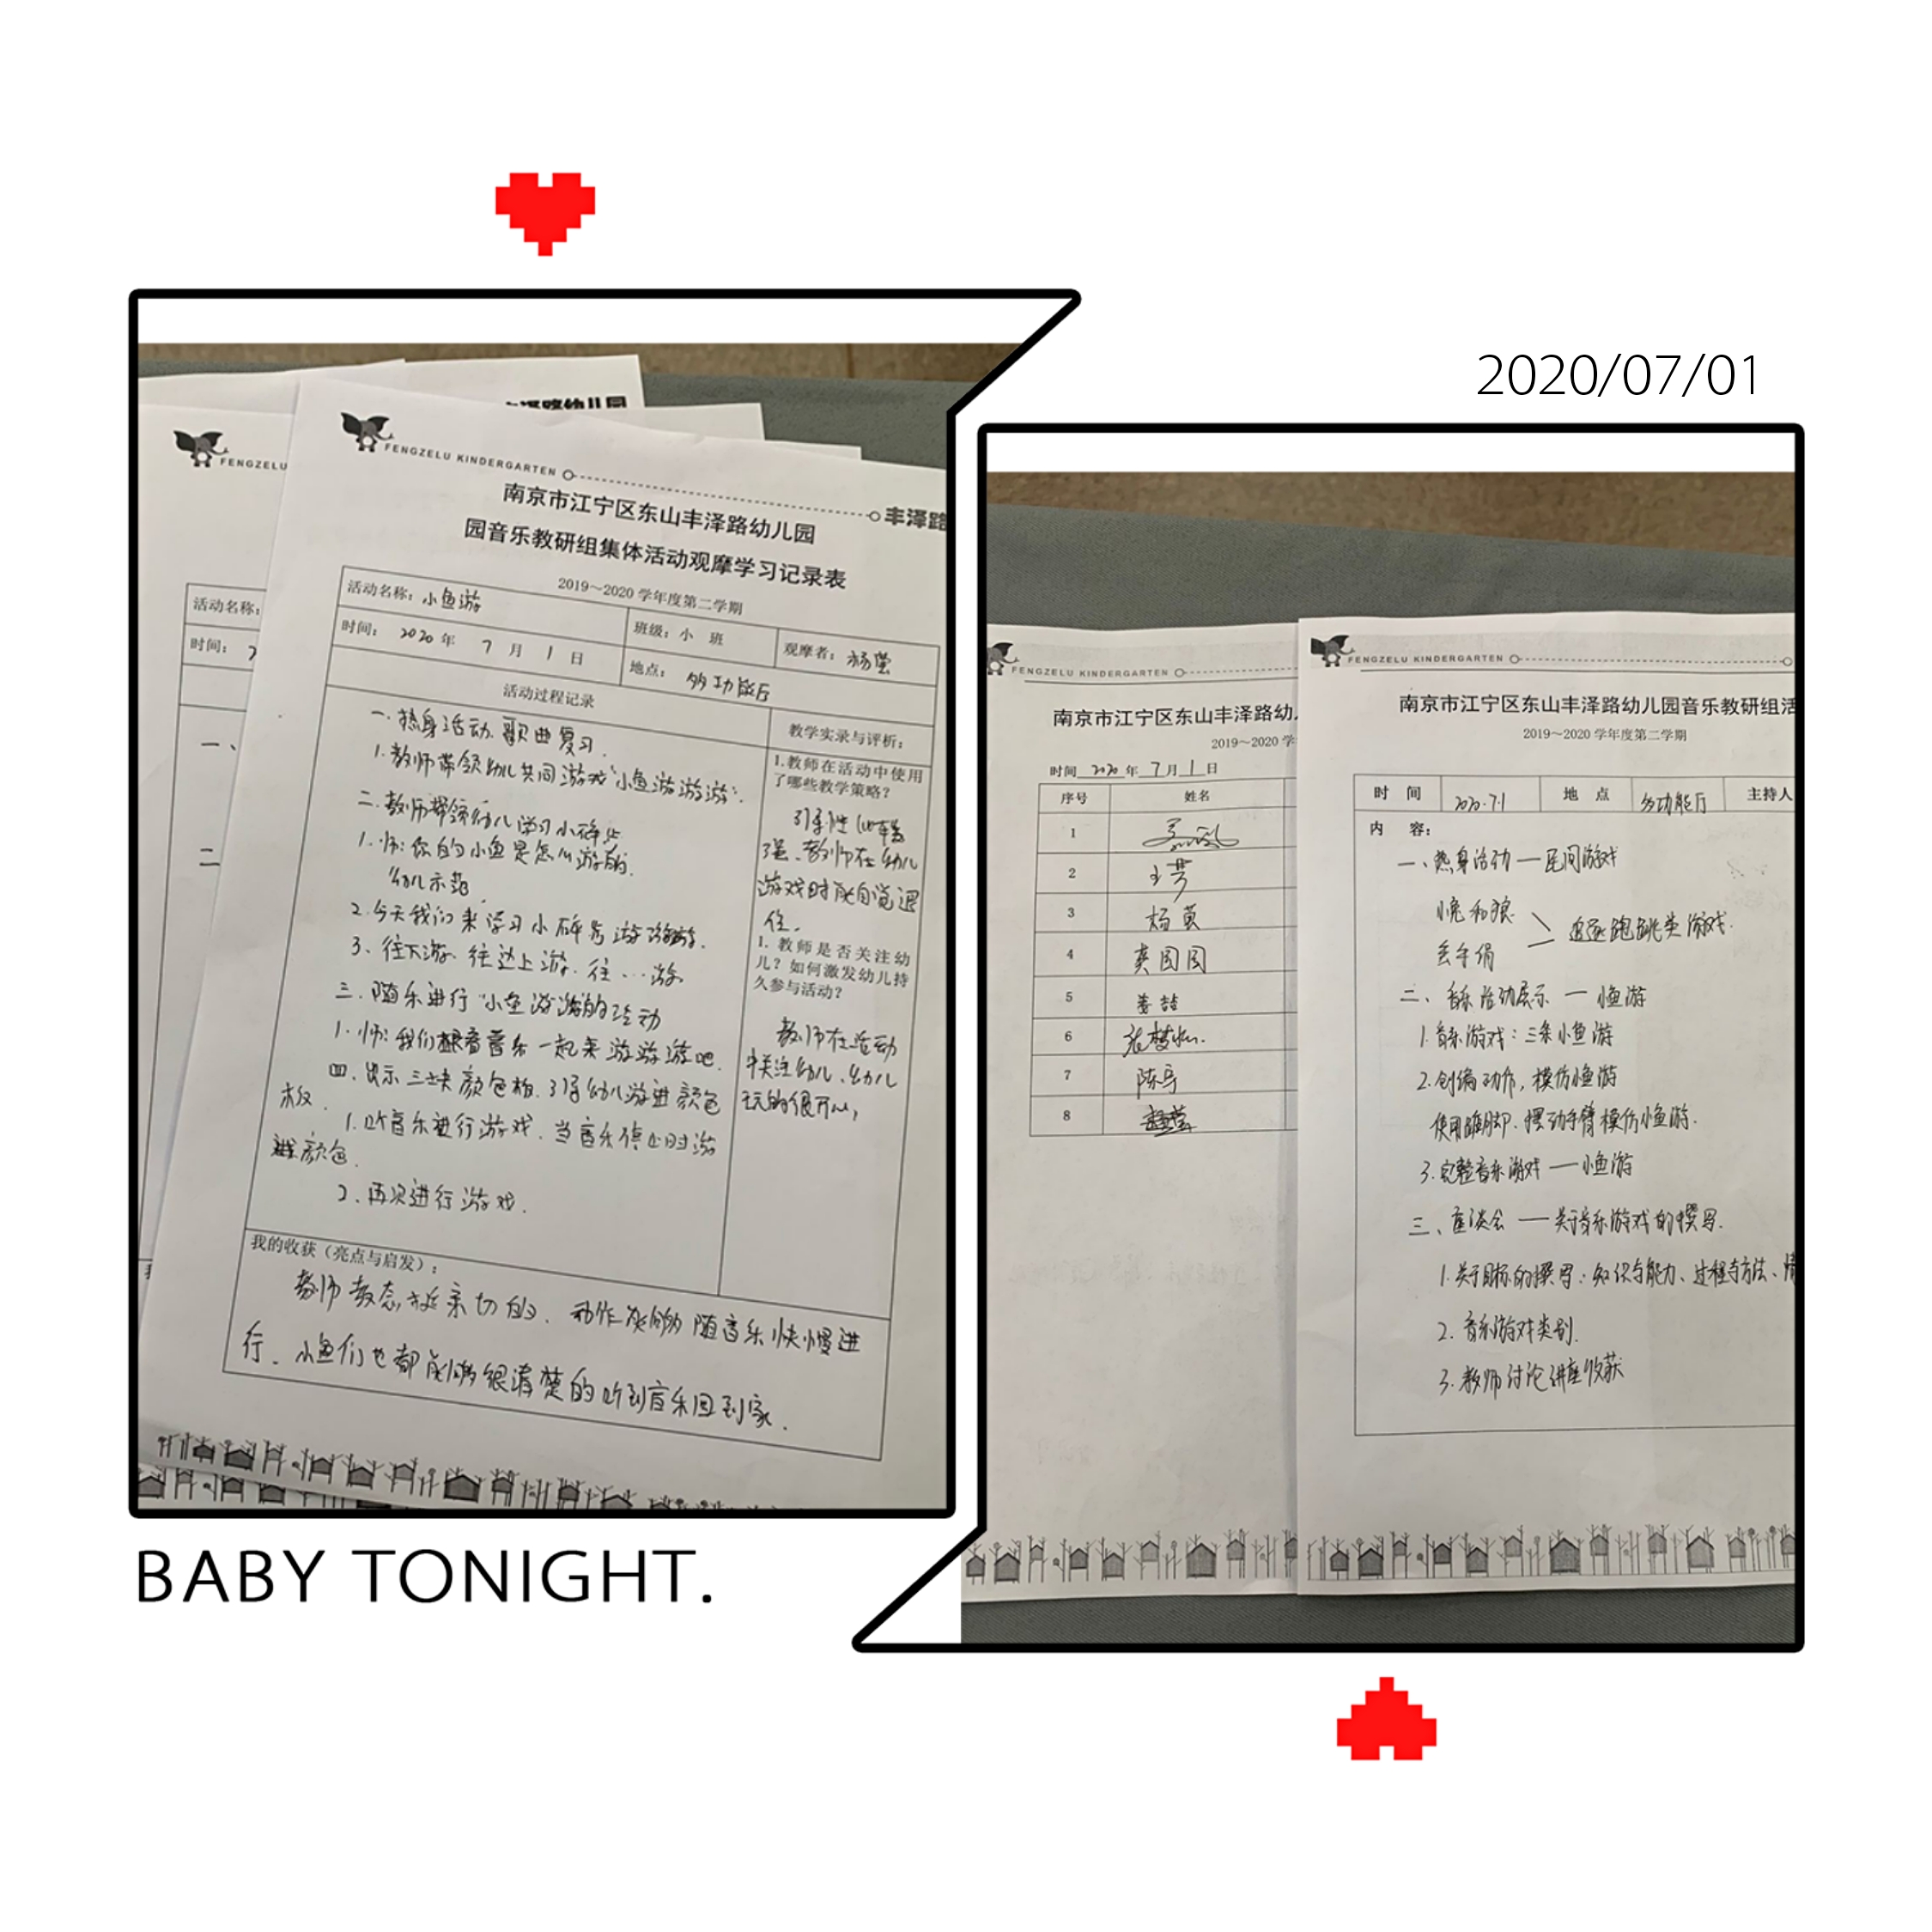 2020/07/01
丰泽路幼儿园
FENGZELU
活动名称:
时间:
一、
二
FENGZELU KINDERGARTEN
丰泽路
南京市江宁区东山丰泽路幼儿园
园音乐教研组集体活动观摩学习记录表
2019～2020 学年度第二学期
活动名称: 小鱼游
班级: 小 班
观摩者: 杨莹
时间: 2020 年 7 月 1 日
地点: 多功能厅
活动过程记录
教学实录与评析:
一. 热身活动. 歌曲复习.
1. 教师带领幼儿共同游戏“小鱼游游游”.
二. 教师带领幼儿学习小碎步
1. 师: 你的小鱼是怎么游的.
幼儿示范.
2. 今天我们来学习小碎步游游游.
3、往下游. 往边上游. 往…游.
三. 随乐进行“小鱼游”游的活动
1. 师: 我们跟着音乐一起来游游游吧.
四. 出示三块颜色板. 引导幼儿游进颜色
板.
1. 听音乐进行游戏. 当音乐停止时游
进颜色.
2. 再次进行游戏.
1.教师在活动中使用
了哪些教学策略?
引导性
强、教师在幼儿
游戏时能自觉退
位.
1. 教师是否关注幼
儿? 如何激发幼儿持
久参与活动?
教师在活动
中关注幼儿、幼儿
玩的很开心,
我的收获（亮点与启发）:
教师教态挺亲切的. 动作能够随音乐快慢进
行. 小鱼们也都能够很清楚的听到音乐回到家.
BABY TONIGHT.
FENGZELU KINDERGARTEN
南京市江宁区东山丰泽路幼
2019～2020 学
时间 2020 年 7 月 1 日
序号 姓名
1
2 王芳
3 杨莹
4 园园
5
6 张梦
7 陈宇
8
FENGZELU KINDERGARTEN
南京市江宁区东山丰泽路幼儿园音乐教研组活
2019～2020 学年度第二学期
时 间 2020.7.1 地 点 多功能厅 主持人
内 容:
一、热身活动 — 民间游戏
小兔和狼
丢手绢
追逐跑跳类游戏.
二、音乐活动展示 — 小鱼游
1. 音乐游戏: 三条小鱼游
2. 创编动作, 模仿小鱼游
使用踏脚. 摆动手臂模仿小鱼游.
3. 完整音乐游戏 — 小鱼游
三、座谈会 — 关于音乐游戏的撰写.
1. 关于目标的撰写: 知识与能力、过程与方法、情
2. 音乐游戏类别.
3. 教师讨论讲座收获